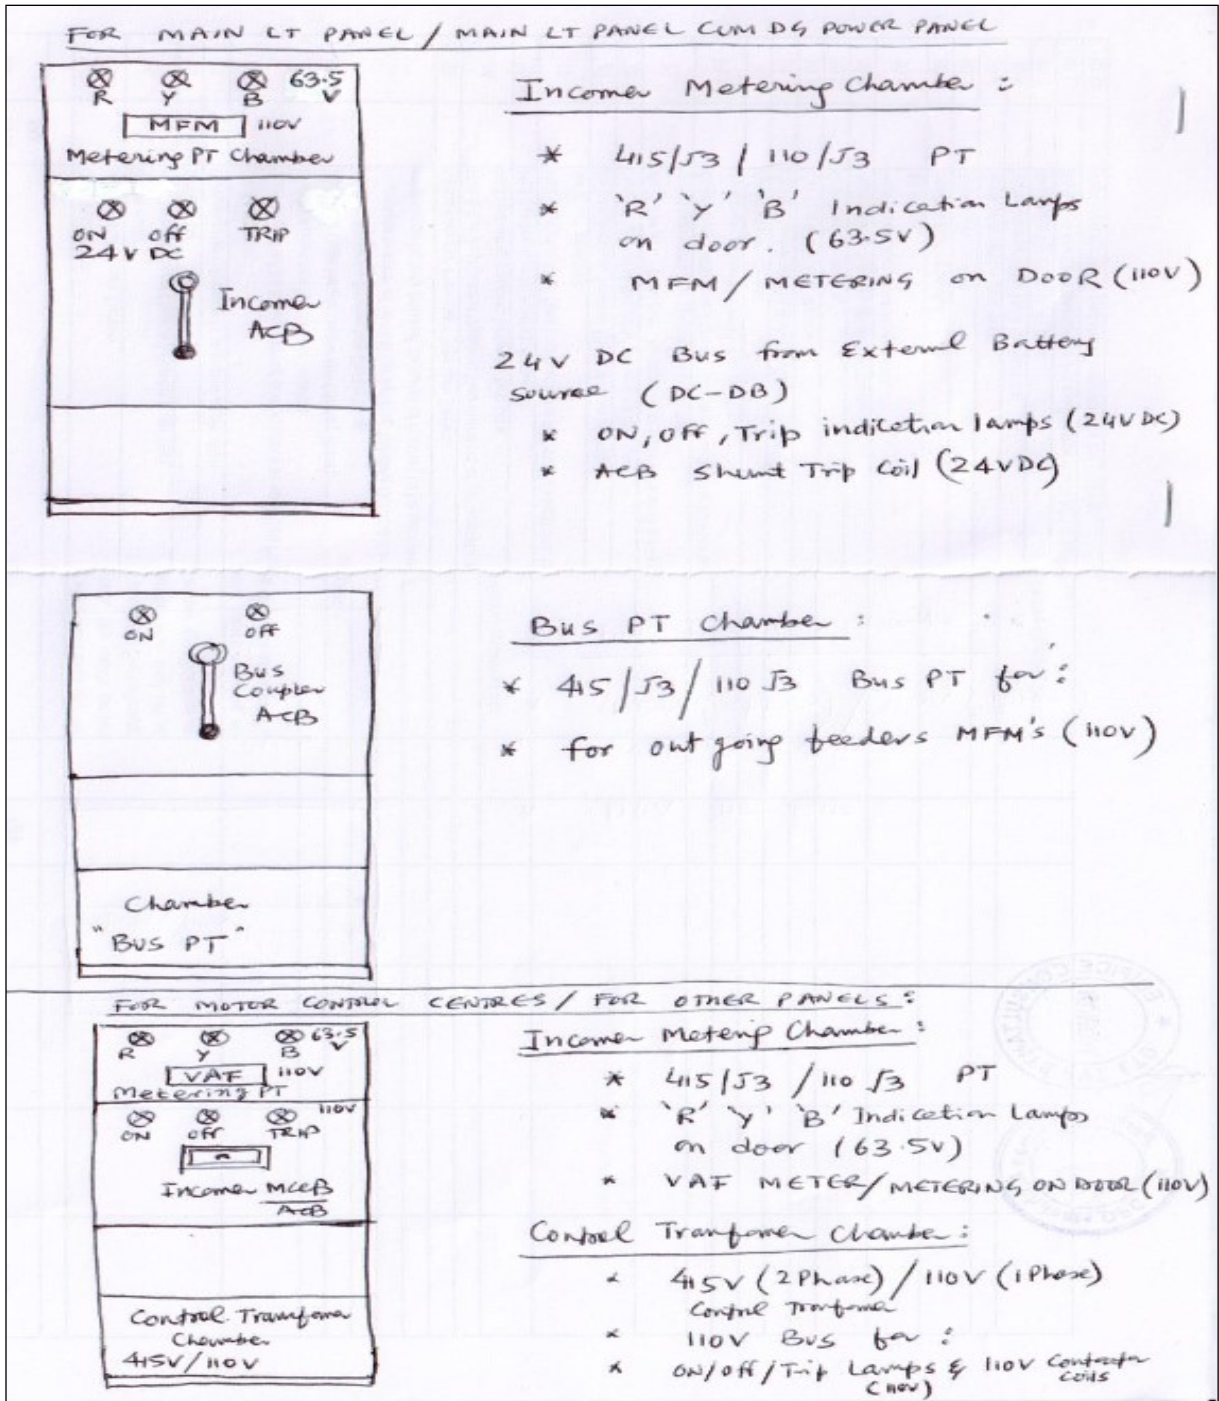 FOR MAIN LT PANEL / MAIN LT PANEL CUM DG POWER PANEL
R Y B 63.5 V
MFM 110V
Metering PT Chamber
ON OFF TRIP
24V DC
Incomer
ACB
Incomer Metering Chamber :
* 415/√3 / 110/√3 PT
* 'R' 'Y' 'B' Indication Lamps
on door. (63.5V)
* MFM / METERING on DOOR (110V)
24V DC Bus from External Battery
source (DC-DB)
* ON, OFF, Trip indication lamps (24V DC)
* ACB Shunt Trip Coil (24V DC)
ON OFF
Bus
Coupler
ACB
Chamber
"BUS PT"
Bus PT Chamber :
* 415/√3 / 110 √3 Bus PT for :
* for out going feeders MFM's (110V)
FOR MOTOR CONTROL CENTRES / FOR OTHER PANELS :
R Y B 63.5 V
VAF 110V
Metering PT
ON OFF TRIP 110V
Incomer MCCB
ACB
Control Tranfomer
Chamber
415V/110V
Incomer Metering Chamber :
* 415/√3 / 110 √3 PT
* 'R' 'Y' 'B' Indication Lamps
on door (63.5V)
* VAF METER / METERING ON DOOR (110V)
Control Tranfomer Chamber :
* 415V (2 Phase) / 110V (1 Phase)
Control Tranfomer
* 110V Bus for :
* ON/OFF/Trip Lamps & 110V Contactor
(110V) Coils